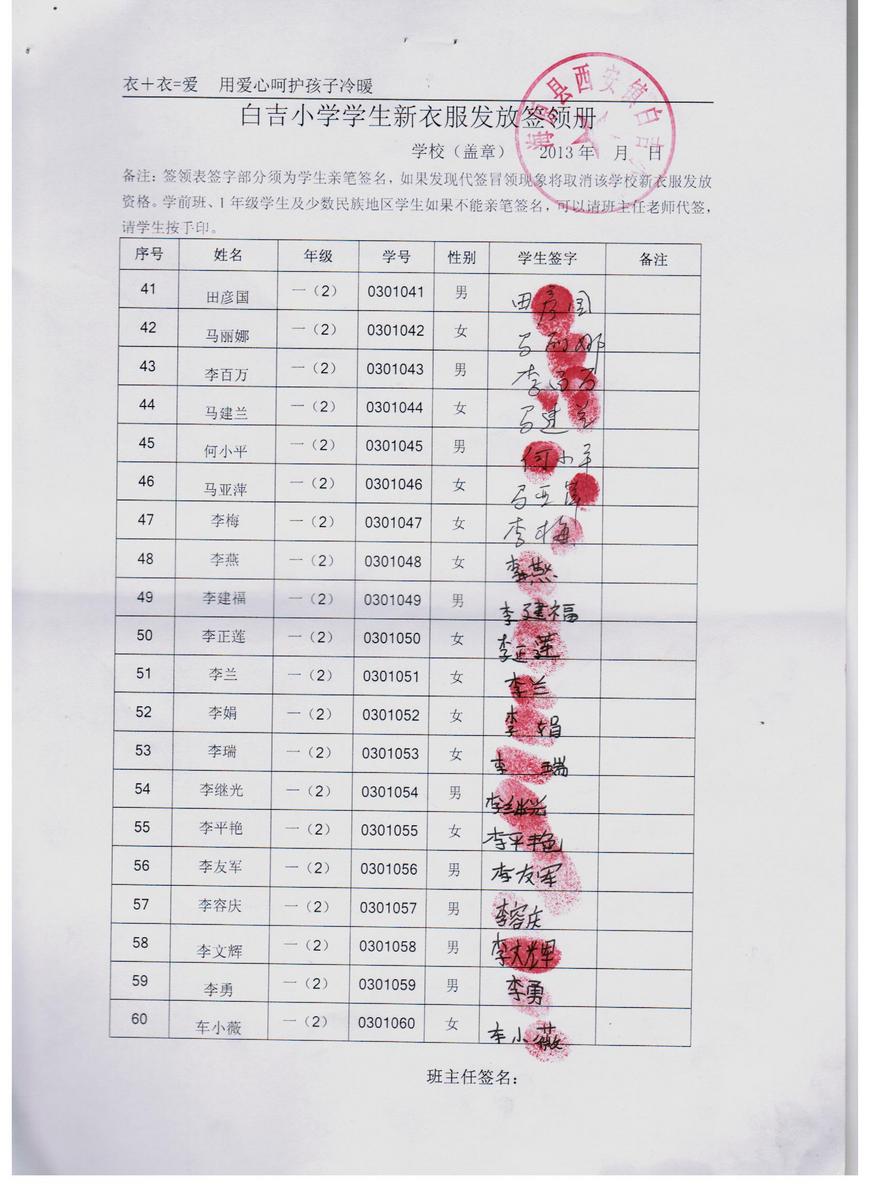 衣+衣=爱 用爱心呵护孩子冷暖
白吉小学学生新衣服发放签领册
海原县西安镇白吉
学校（盖章） 2013年 月 日
备注：签领表签字部分须为学生亲笔签名，如果发现代签冒领现象将取消该学校新衣服发放
资格。学前班、1年级学生及少数民族地区学生如果不能亲笔签名，可以请班主任老师代签，
请学生按手印。
序号 姓名 年级 学号 性别 学生签字 备注
41 田彦国 一（2） 0301041 男 田彦国
42 马丽娜 一（2） 0301042 女 马丽娜
43 李百万 一（2） 0301043 男 李百万
44 马建兰 一（2） 0301044 女 马建兰
45 何小平 一（2） 0301045 男 何小平
46 马亚萍 一（2） 0301046 女 马亚萍
47 李梅 一（2） 0301047 女 李梅
48 李燕 一（2） 0301048 女 李燕
49 李建福 一（2） 0301049 男 李建福
50 李正莲 一（2） 0301050 女 李正莲
51 李兰 一（2） 0301051 女 李兰
52 李娟 一（2） 0301052 女 李娟
53 李瑞 一（2） 0301053 女 李瑞
54 李继光 一（2） 0301054 男 李继光
55 李平艳 一（2） 0301055 女 李平艳
56 李友军 一（2） 0301056 男 李友军
57 李容庆 一（2） 0301057 男 李容庆
58 李文辉 一（2） 0301058 男 李文辉
59 李勇 一（2） 0301059 男 李勇
60 车小薇 一（2） 0301060 女 车小薇
班主任签名：